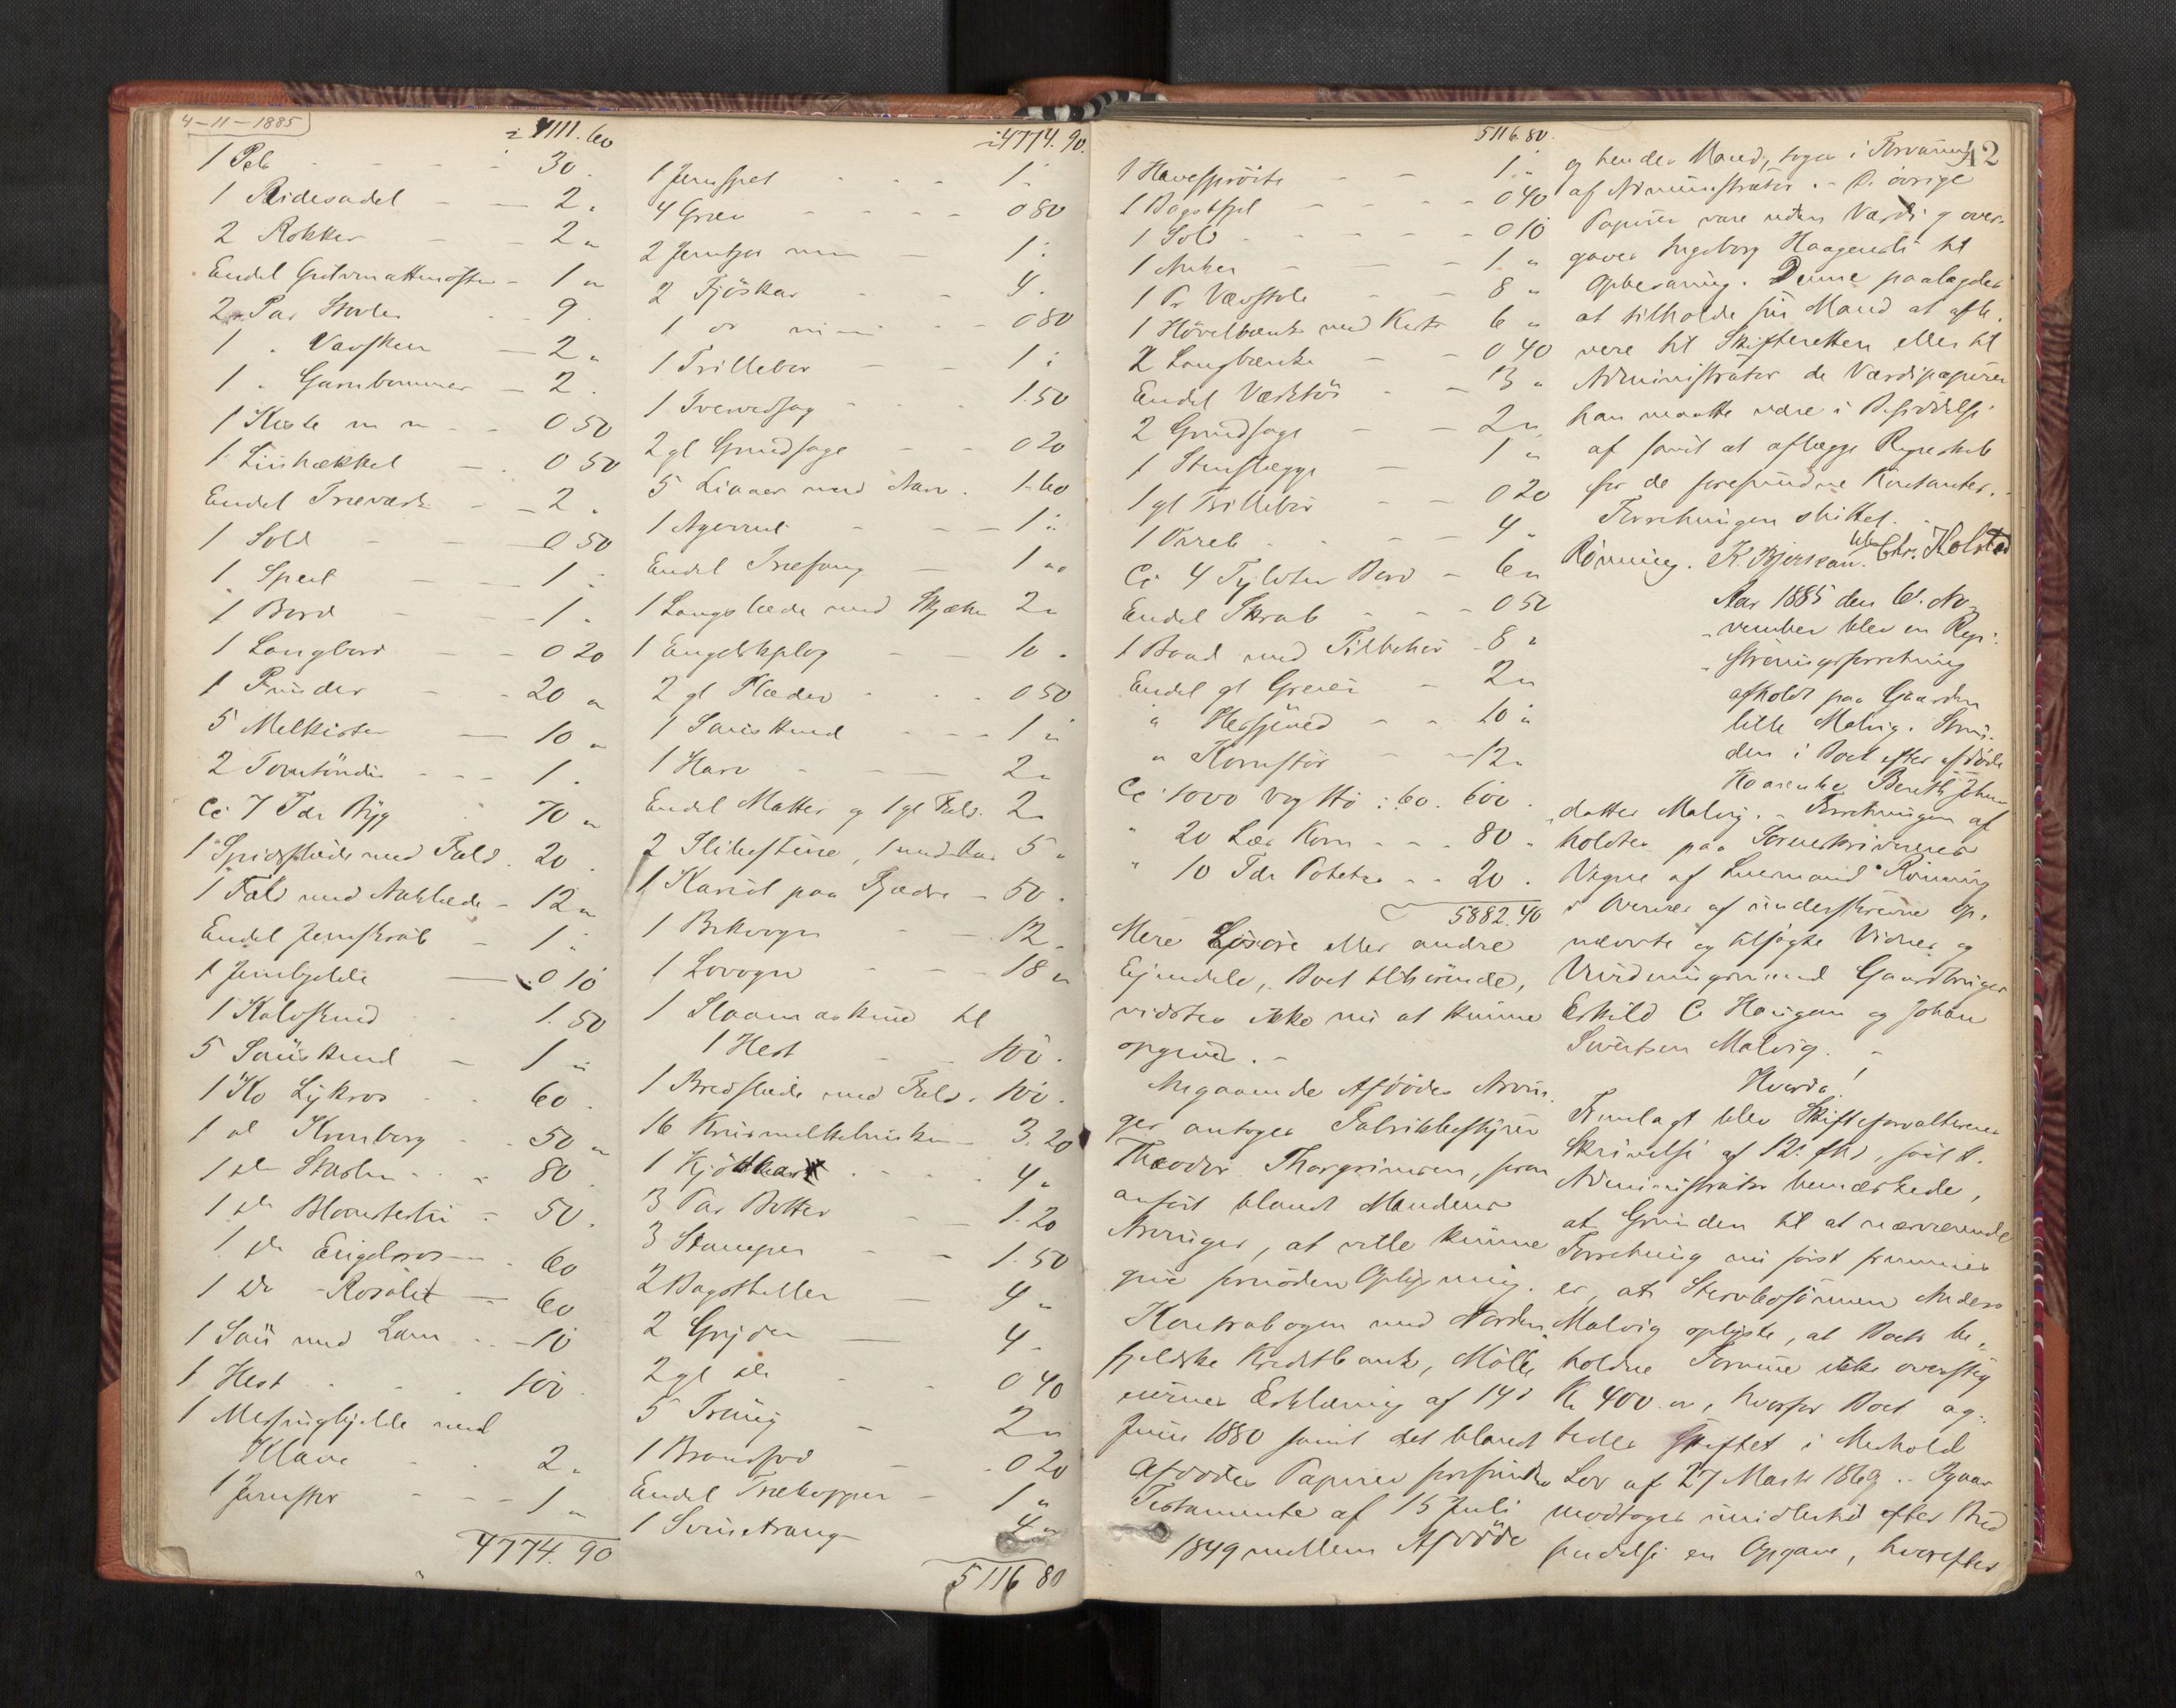 4-11-1885
4111.60
1 Pels - - - 30.
1 Ridesadel - - 2 "
2 Rokker - 2 "
Endel - 1 "
2 Par - 9.
1 " Vævskeer - 2 "
1 " Garnbommer - 2.
1 Kiste m m - - 0 50
1 Linhækkel - . 0 50
Endel Træværk - - 2 "
1 Sold - - 0 50
1 - - 1 "
1 Bord - - 1 "
1 Langbord - - 0 20
1 - - 20 "
5 Melkister - 10 "
2 Tomtöndr - - - 1.
Ca 7 Tdr Byg 70 "
1 Spidsslæde med Fald. 20.
1 Fald med - 12 "
Endel Jernskrab - 1 "
1 Jernbjelde - 0 10
1 Kalvskind - 1.50
5 Saueskind - 1 "
1 Ko Lykros - 60.
1 d Kronborg - 50 "
1 do - 80.
1 do - 50.
1 do Engelros - 60
1 do Rosalit - 60
1 Sau med Lam - 10
1 Hest - - - 100.
1 Messingbjelde med
Klave - - 2 "
1 - - - 1 "
4774.90
4774.90.
1 Jernspet - - - 1 "
4 Grev - - - - 0 80
2 m m - 1 "
2 Fjöskar - - 4.
1 do m m - - 0 80
1 Trillebor - - 1 "
1 Tvervedsag - - - 1.50
2 gl Grindsage - - 0 20
5 Liaaer med Orv . 1.60
1 - - - 1 "
Endel Træfang - 1 "
1 Langslæde med 2 "
1 Engelskplog - - 10 "
2 gl Slæder - . . 0 50
1 Saueskind - - - 1 "
1 Harv - - - 2 "
Endel Matter og 1 gl Fald. 2 "
2 Slibestene, 5 "
1 Kariol paa Fjædre - 50.
1 - - 12 "
1 - - - 18 "
1 Slaamaskine til
1 Hest - - 100.
1 Bredslæde med Fald . 100.
16 - 3.20
1 Kjödkar . . . . 4 "
3 Par Bötter - - 1.20
3 Stamper - - 1.50
2 Bagstheller - 4 "
2 Gryder - 4 "
2 gl do - - 0 40
5 - 2 "
1 - . 0 20
Endel Trækopper - 1 "
1 - 4 "
5116 80
5116.80.
1 Havespröite - - 1 "
1 - - - 0 40
1 Sold - - - - 0 10
1 Anker - - - 1 "
1 Pr Vævstole - - 8 "
1 Hövelbænk med Kiste 6 "
2 Langbænke - - 0 40
Endel Værktöi - - 3 "
2 Grindsage - - 2 "
1 Stenslægge - 1 "
1 gl Trillebör - - 0 20
1 - - - 4 "
Ca 4 Tylvter Bord - 6 "
Endel Skrab - - - 0 50
1 Baad med Tilbehör - 8 "
Endel gl Greier - 2 "
" Hesjeved - - 10 "
" Kornstör - - 12 "
Ca 1000 Vog Hö : 60. 600.
" 20 Læs Korn - - - 80 "
" 10 Tdr Poteter - - 20.
5882.40
Mere Lösöre eller andre
Eiendele, Boet tilhörende,
vidstes ikke nu at kunne
opgives. -
Angaaende Afdödes Arvin-
ger antoges Fabrikbestyrer
Theodor Thorgrimsen, som
anfört blandt Mandens
Arvinger, at ville kunne
give fornöden Oplysning.
Kontrabogen med Norden-
fjeldske Kreditbank, Mölle-
eiernes Erklæring af 14d
Juni 1880 samt det blandt
Afdödes Papirer forefundne
Testamente af 15 Juli
1849 mellem Afdöde
42
og hendes Mand, toges i Forvaring
af Administrator. - De övrige
Papirer vare uden Værdi og over-
gaves Ingeborg Haagensli til
Opbevaring. Denne paalagdes
at tilholde sin Mand at afle-
vere til Skifteretten eller til
Administrator de Værdipapirer
han maatte være i Besiddelse
af samt at aflægge Regnskab
for de forefundne Kontanter. -
Forretningen sluttet. -
Rönning. K. Bjerkan. Chr. Kolstad
Aar 1885 den 6. No-
vember blev en Regi-
streringsforretning
afholdt paa Gaarden
lille Malvig. Strin-
den i Boet efter afdöde
Kaarenke Bereth Johns-
datter Malvig. - Forretningen af-
holdtes paa Sorenskriverens
Vegne af Lensmand Rönning
i Overvær af underskrevne op-
nævnte og tilsagte Vidner og
Vurderingsmænd Gaardbruger
Eskild C. Haugan og Johan
Sivertsen Malvig. -
Hvorda!
Fremlagt blev Skifteforvalterens
Skrivelse af 12. f.M.,
Administrator bemærkede,
at Grunden til at nærværende
Forretning nu först fremmes
er, at Stervbosönnen Anders
Malvig oplyste, at Boets be-
holdne Formue ikke oversteg
Kr 400. ", hvorfor Boet ag-
tedes skiftet i Medhold
Lov af 27 Marts 1869.. Igaar
modtoges imidlertid efter
findelse en Opgave, hvorefter